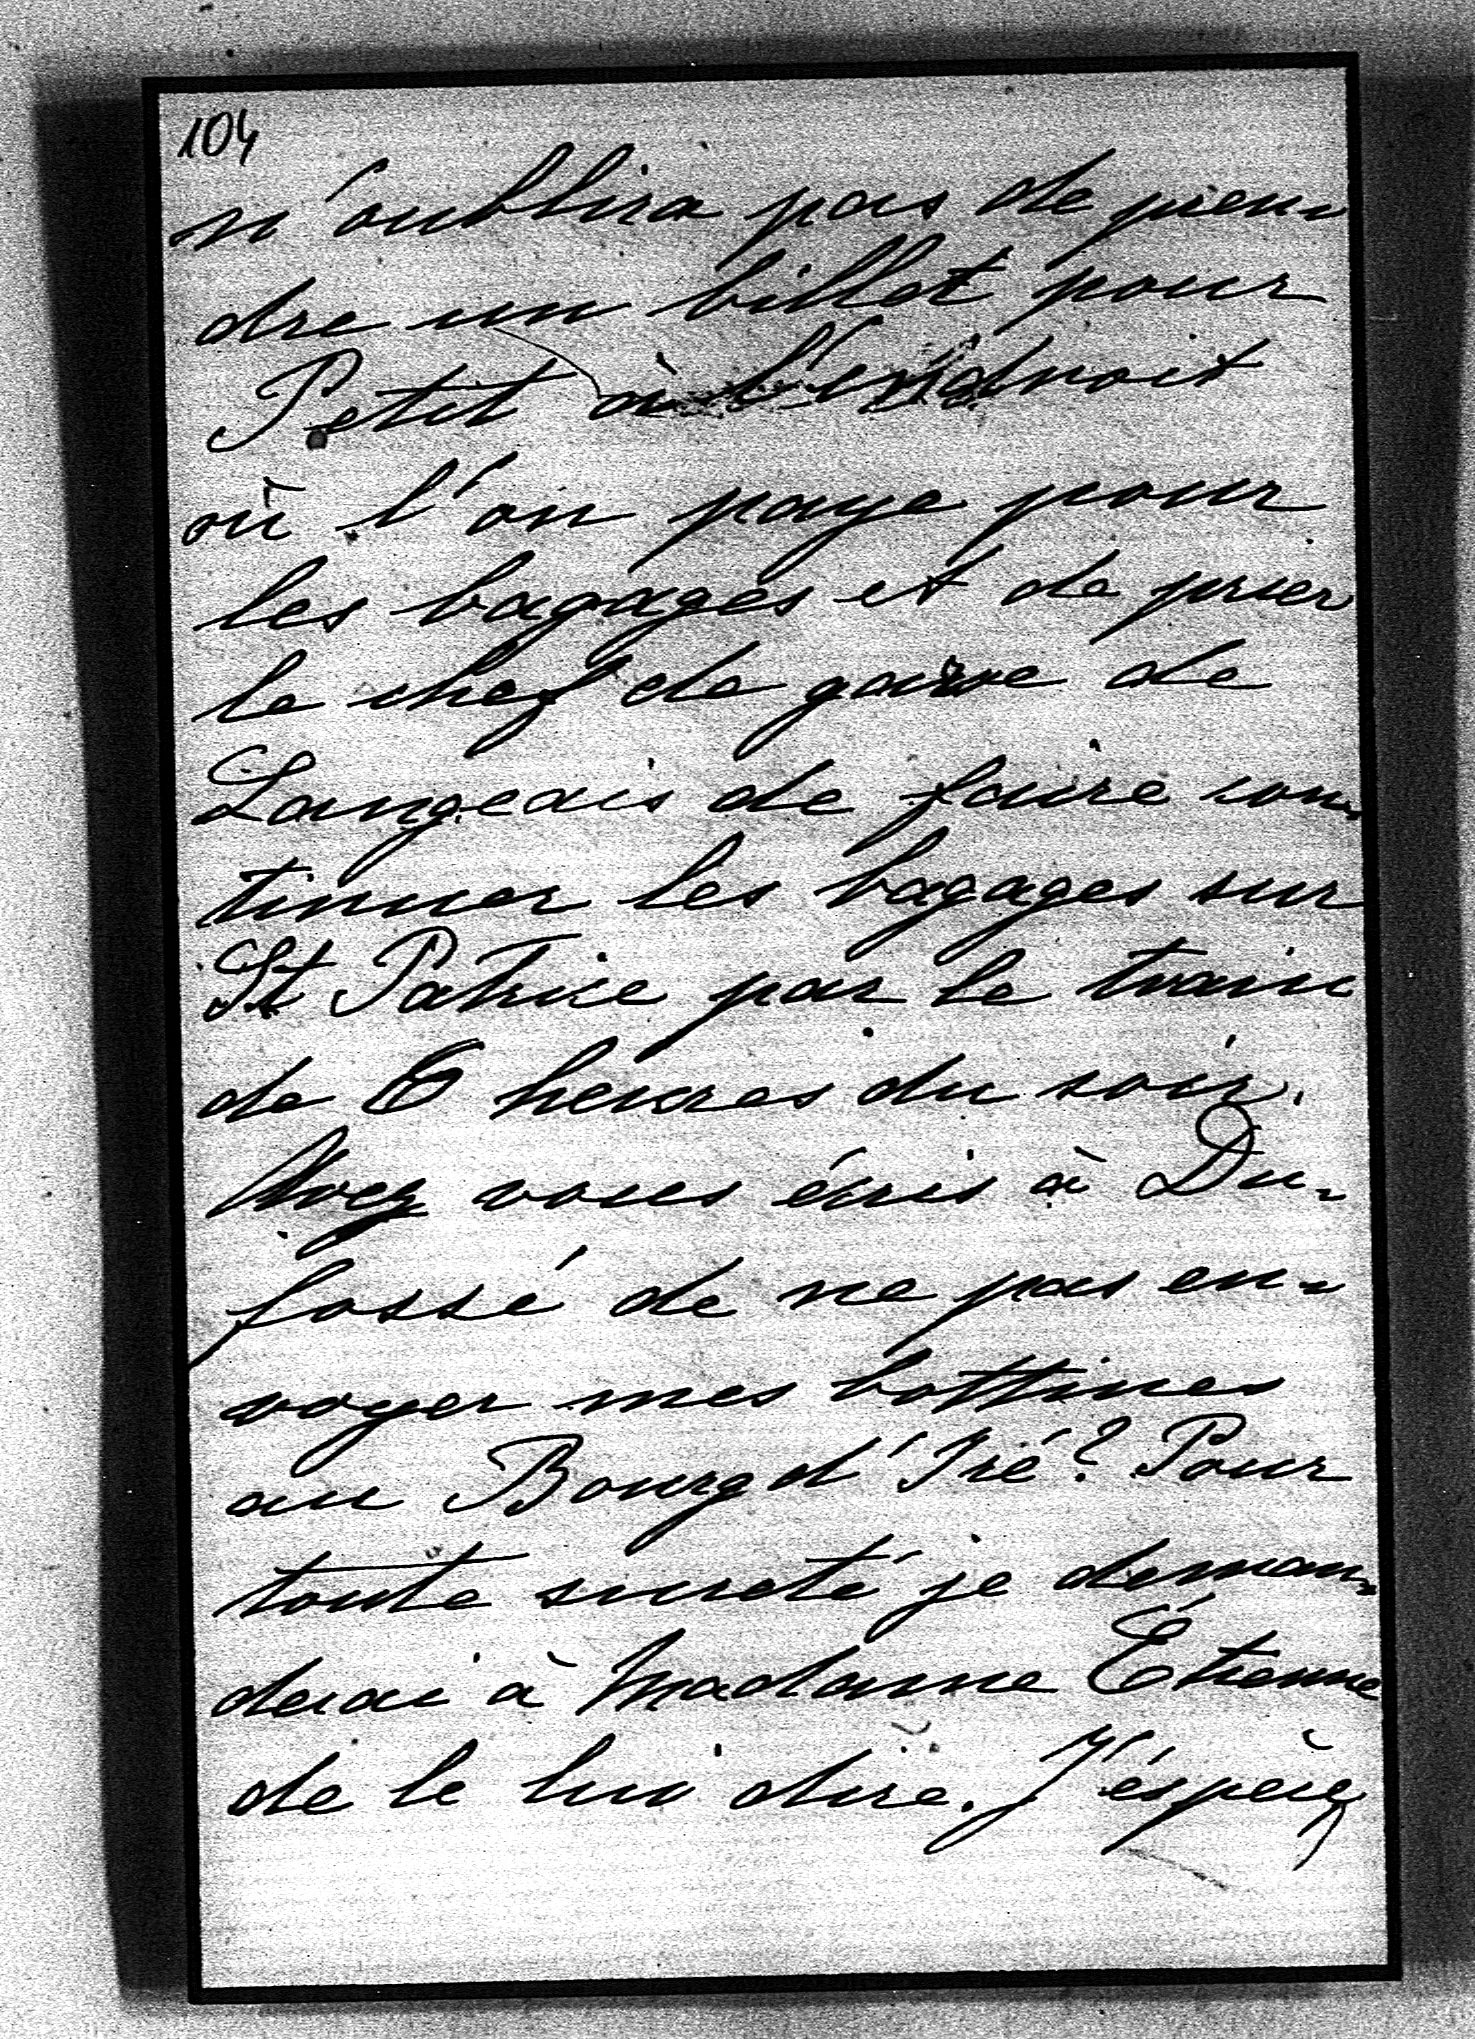 104
n'oublira pas de pren-
dre un billet pour
Petit à l'endroit
où l'on paye pour
les bagages et de prier
le chef de gare de
Langeais de faire con-
tinuer les bagages sur
St Patrice par le train
de 6 heures du soir.
Avez vous écris à Du-
fossé de ne pas en-
voyer mes bottines
au Bourg d'Iré? Pour
toute sureté je deman-
derai à Madame Étienne
de le lui dire. J'éspère